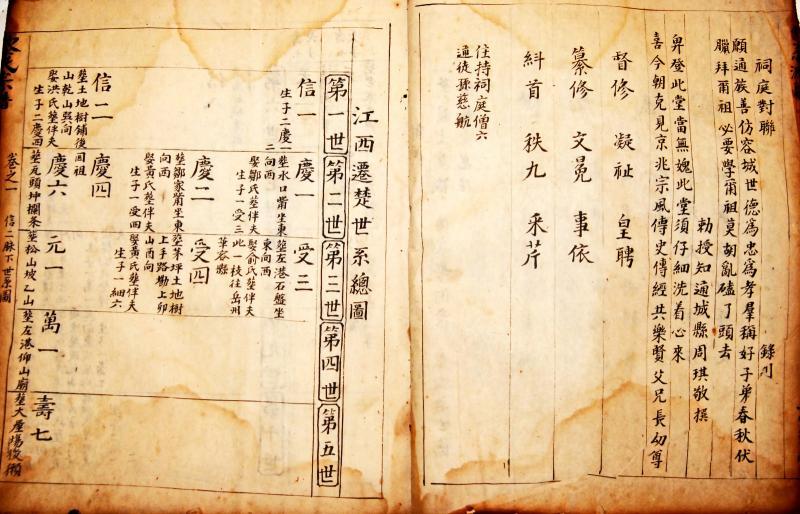 祠庭對聯　錄刋
願通族善仿容城世德為忠為孝羣稱好子弟春秋伏
臘拜爾祖必要學爾祖莫胡亂磕了頭去
勅授知通城縣周琪敬撰
卑登此堂當無媿此堂須仔細洗着心來
喜今朝克見京兆宗風傳史傳經共樂賢父兄長幼尊
督修　凝祉　皇聘
纂修　文冕　事依
糾首　秩九　采芹
住持祠庭僧六
通徒孫慈航
江西遷楚世系總圖
第一世
第二世
第三世
第四世
第五世
信一
生子二慶一
慶一
塟水口嘴坐東
向西
娶鄒氏塟伴夫
生子一受三
受三
塟左港石盤坐
東向西
娶俞氏塟伴夫
此一枝徃岳州
華容縣
慶二
塟鄒家嘴坐東
向西
娶黃氏塟伴夫
生子一受四
受四
塟茅坪土地樹
上手路塝上卯
山酉向
娶黃氏塟伴夫
生子一細六
信二
塟土地樹鋪後
山乾山巽向
娶洪氏塟伴夫
生子二慶四
慶四
回祖
慶六
塟瓦頭坤
元一
塟松山坡乙山
萬一
塟左港仰山廟
壽七
卷之一
信二麻下世系圖